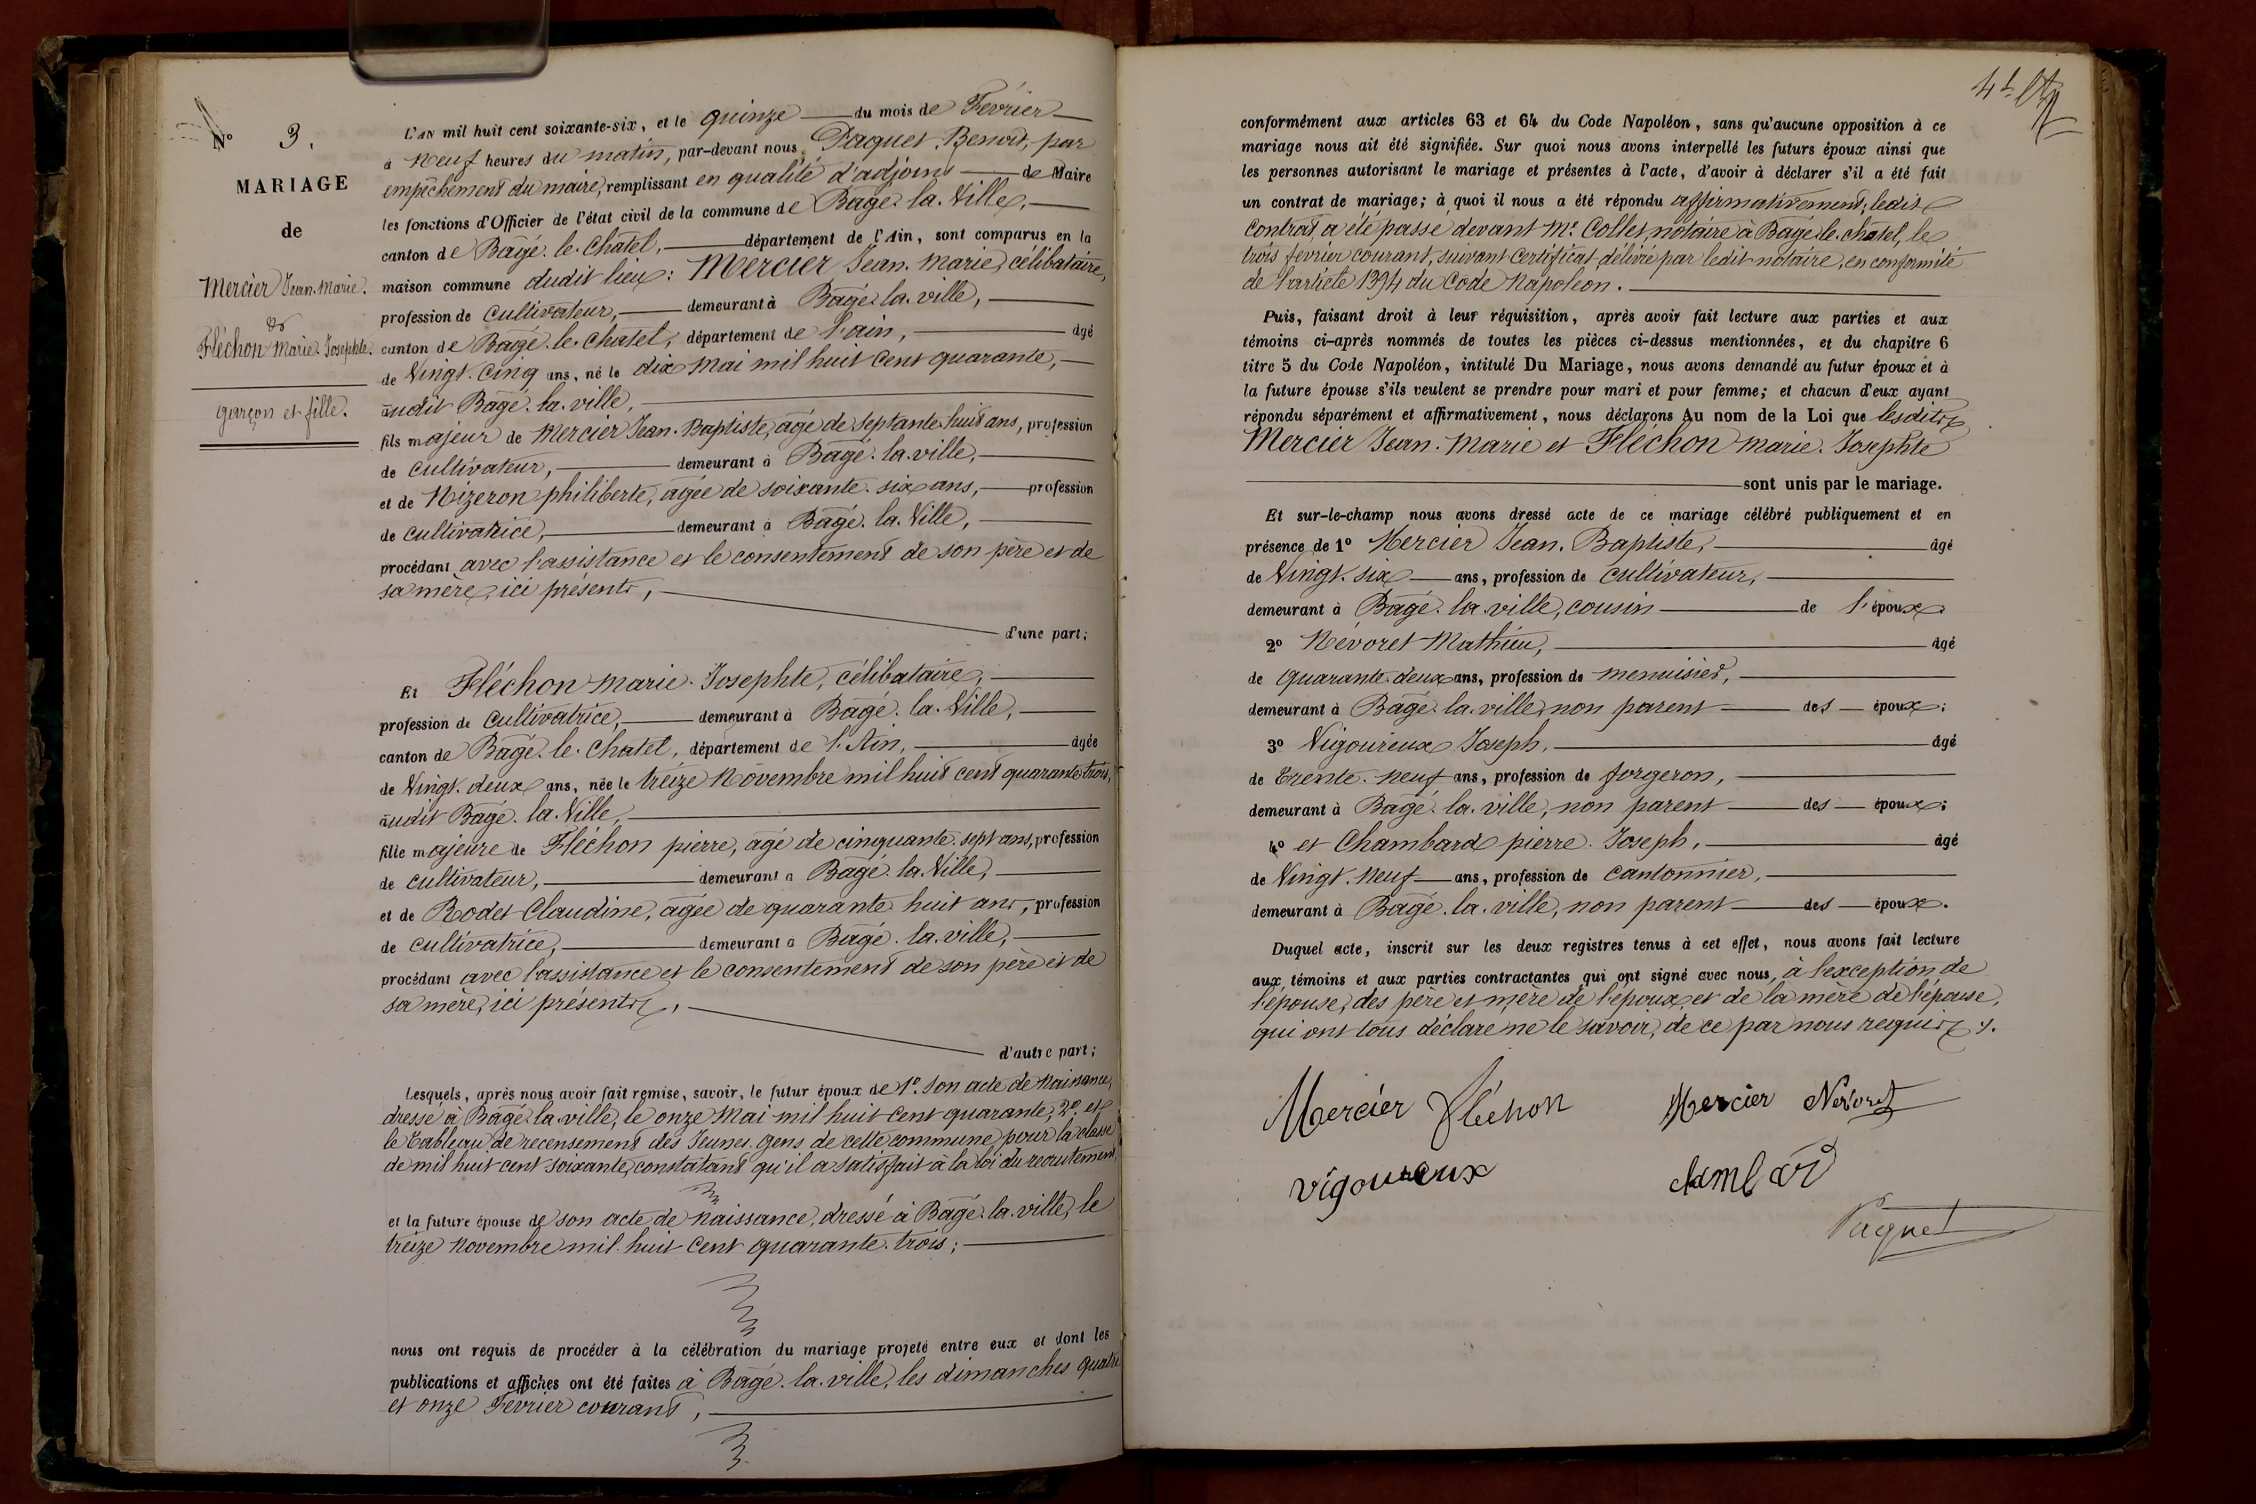 N° 3.
MARIAGE
de
Mercier Jean-Marie.
&
Fléchon Marie-Josephte.
garçon et fille.
L'AN mil huit cent soixante-six, et le quinze du mois de Février
à neuf heures du matin, par-devant nous, Paquet Benoit, par
empêchement du maire, remplissant en qualité d'adjoint de Maire
les fonctions d'Officier de l'état civil de la commune de Bagé-la-Ville,
canton de Bagé-le-Chatel, département de l'Ain, sont comparus en la
maison commune dudit lieu: Mercier Jean-Marie, célibataire,
profession de cultivateur, demeurant à Bagé-la-ville,
canton de Bagé-le-Chatel, département de l'ain, âgé
de Vingt-Cinq ans, né le dix Mai mil huit cent quarante,
audit Bagé-la-ville,
fils majeur de Mercier Jean-Baptiste, âgé de septante-huit ans, profession
de cultivateur, demeurant à Bagé-la-ville,
et de Nizeron philiberte, âgée de soixante-six ans, profession
de cultivatrice, demeurant à Bagé-la-Ville,
procédant avec l'assistance et le consentement de son père et de
sa mère, ici présents,
d'une part;
Et Fléchon Marie-Josephte, célibataire,
profession de cultivatrice, demeurant à Bagé-la-Ville,
canton de Bagé-le-Chatel, département de l'Ain, âgée
de Vingt-deux ans, née le treize Novembre mil huit cent quarante-trois,
audit Bagé-la-Ville,
fille majeure de Fléchon pierre, âgé de cinquante-sept ans, profession
de cultivateur, demeurant à Bagé-la-Ville,
et de Rodet Claudine, âgée de quarante-huit ans, profession
de cultivatrice, demeurant à Bagé-la-ville,
procédant avec l'assistance et le consentement de son père et de
sa mère, ici présents,
d'autre part;
Lesquels, après nous avoir fait remise, savoir, le futur époux de 1°. son acte de naissance,
dressé à Bagé-la-ville, le onze Mai mil huit cent quarante, 2°. et
le Tableau de recensement des Jeunes-gens de cette commune, pour la classe
de mil huit cent soixante, constatant qu'il a satisfait à la loi du recrutement,
et la future épouse de son acte de Naissance, dressé à Bagé-la-ville, le
treize novembre mil-huit cent quarante-trois;
nous ont requis de procéder à la célébration du mariage projeté entre eux et dont les
publications et affiches ont été faites à Bagé-la-ville, les dimanches quatre
et onze Février courant,
conformément aux articles 63 et 64 du Code Napoléon, sans qu'aucune opposition à ce
mariage nous ait été signifiée. Sur quoi nous avons interpellé les futurs époux ainsi que
les personnes autorisant le mariage et présentes à l'acte, d'avoir à déclarer s'il a été fait
un contrat de mariage; à quoi il nous a été répondu affirmativement; ledit
contrat, a été passé devant Me. Collet, notaire à Bagé-le-chatel, le
trois fevrier courant, suivant certificat, délivré par ledit notaire, en conformité
de l'article 1394 du Code Napoleon.
Puis, faisant droit à leur réquisition, après avoir fait lecture aux parties et aux
témoins ci-après nommés de toutes les pièces ci-dessus mentionnées, et du chapitre 6
titre 5 du Code Napoléon, intitulé Du Mariage, nous avons demandé au futur époux et à
la future épouse s'ils veulent se prendre pour mari et pour femme; et chacun d'eux ayant
répondu séparément et affirmativement, nous déclarons Au nom de la Loi que lesdits
Mercier Jean-Marie et Fléchon Marie-Josephte
sont unis par le mariage.
Et sur-le-champ nous avons dressé acte de ce mariage célébré publiquement et en
présence de 1° Mercier Jean-Baptiste, âgé
de Vingt-six ans, profession de cultivateur,
demeurant à Bagé-la-ville, cousin de l'époux
2° Névoret Mathieu, âgé
de quarante-deux ans, profession de menuisier,
demeurant à Bagé-la-ville, non parent des époux;
3° Vigoureux Joseph, âgé
de Trente-neuf ans, profession de forgeron,
demeurant à Bagé-la-ville, non parent des époux;
4° et Chambard pierre-Joseph, âgé
de Vingt-neuf ans, profession de cantonnier,
demeurant à Bagé-la-ville, non parent des époux.
Duquel acte, inscrit sur les deux registres tenus à cet effet, nous avons fait lecture
aux témoins et aux parties contractantes qui ont signé avec nous, à l'exception de
l'épouse, des père et mère de l'époux, et de la mère de l'épouse,
qui ont tous déclaré ne le savoir, de ce par nous requis.
Mercier Fléchon Mercier Névoret
vigoureux chambard
Paquet